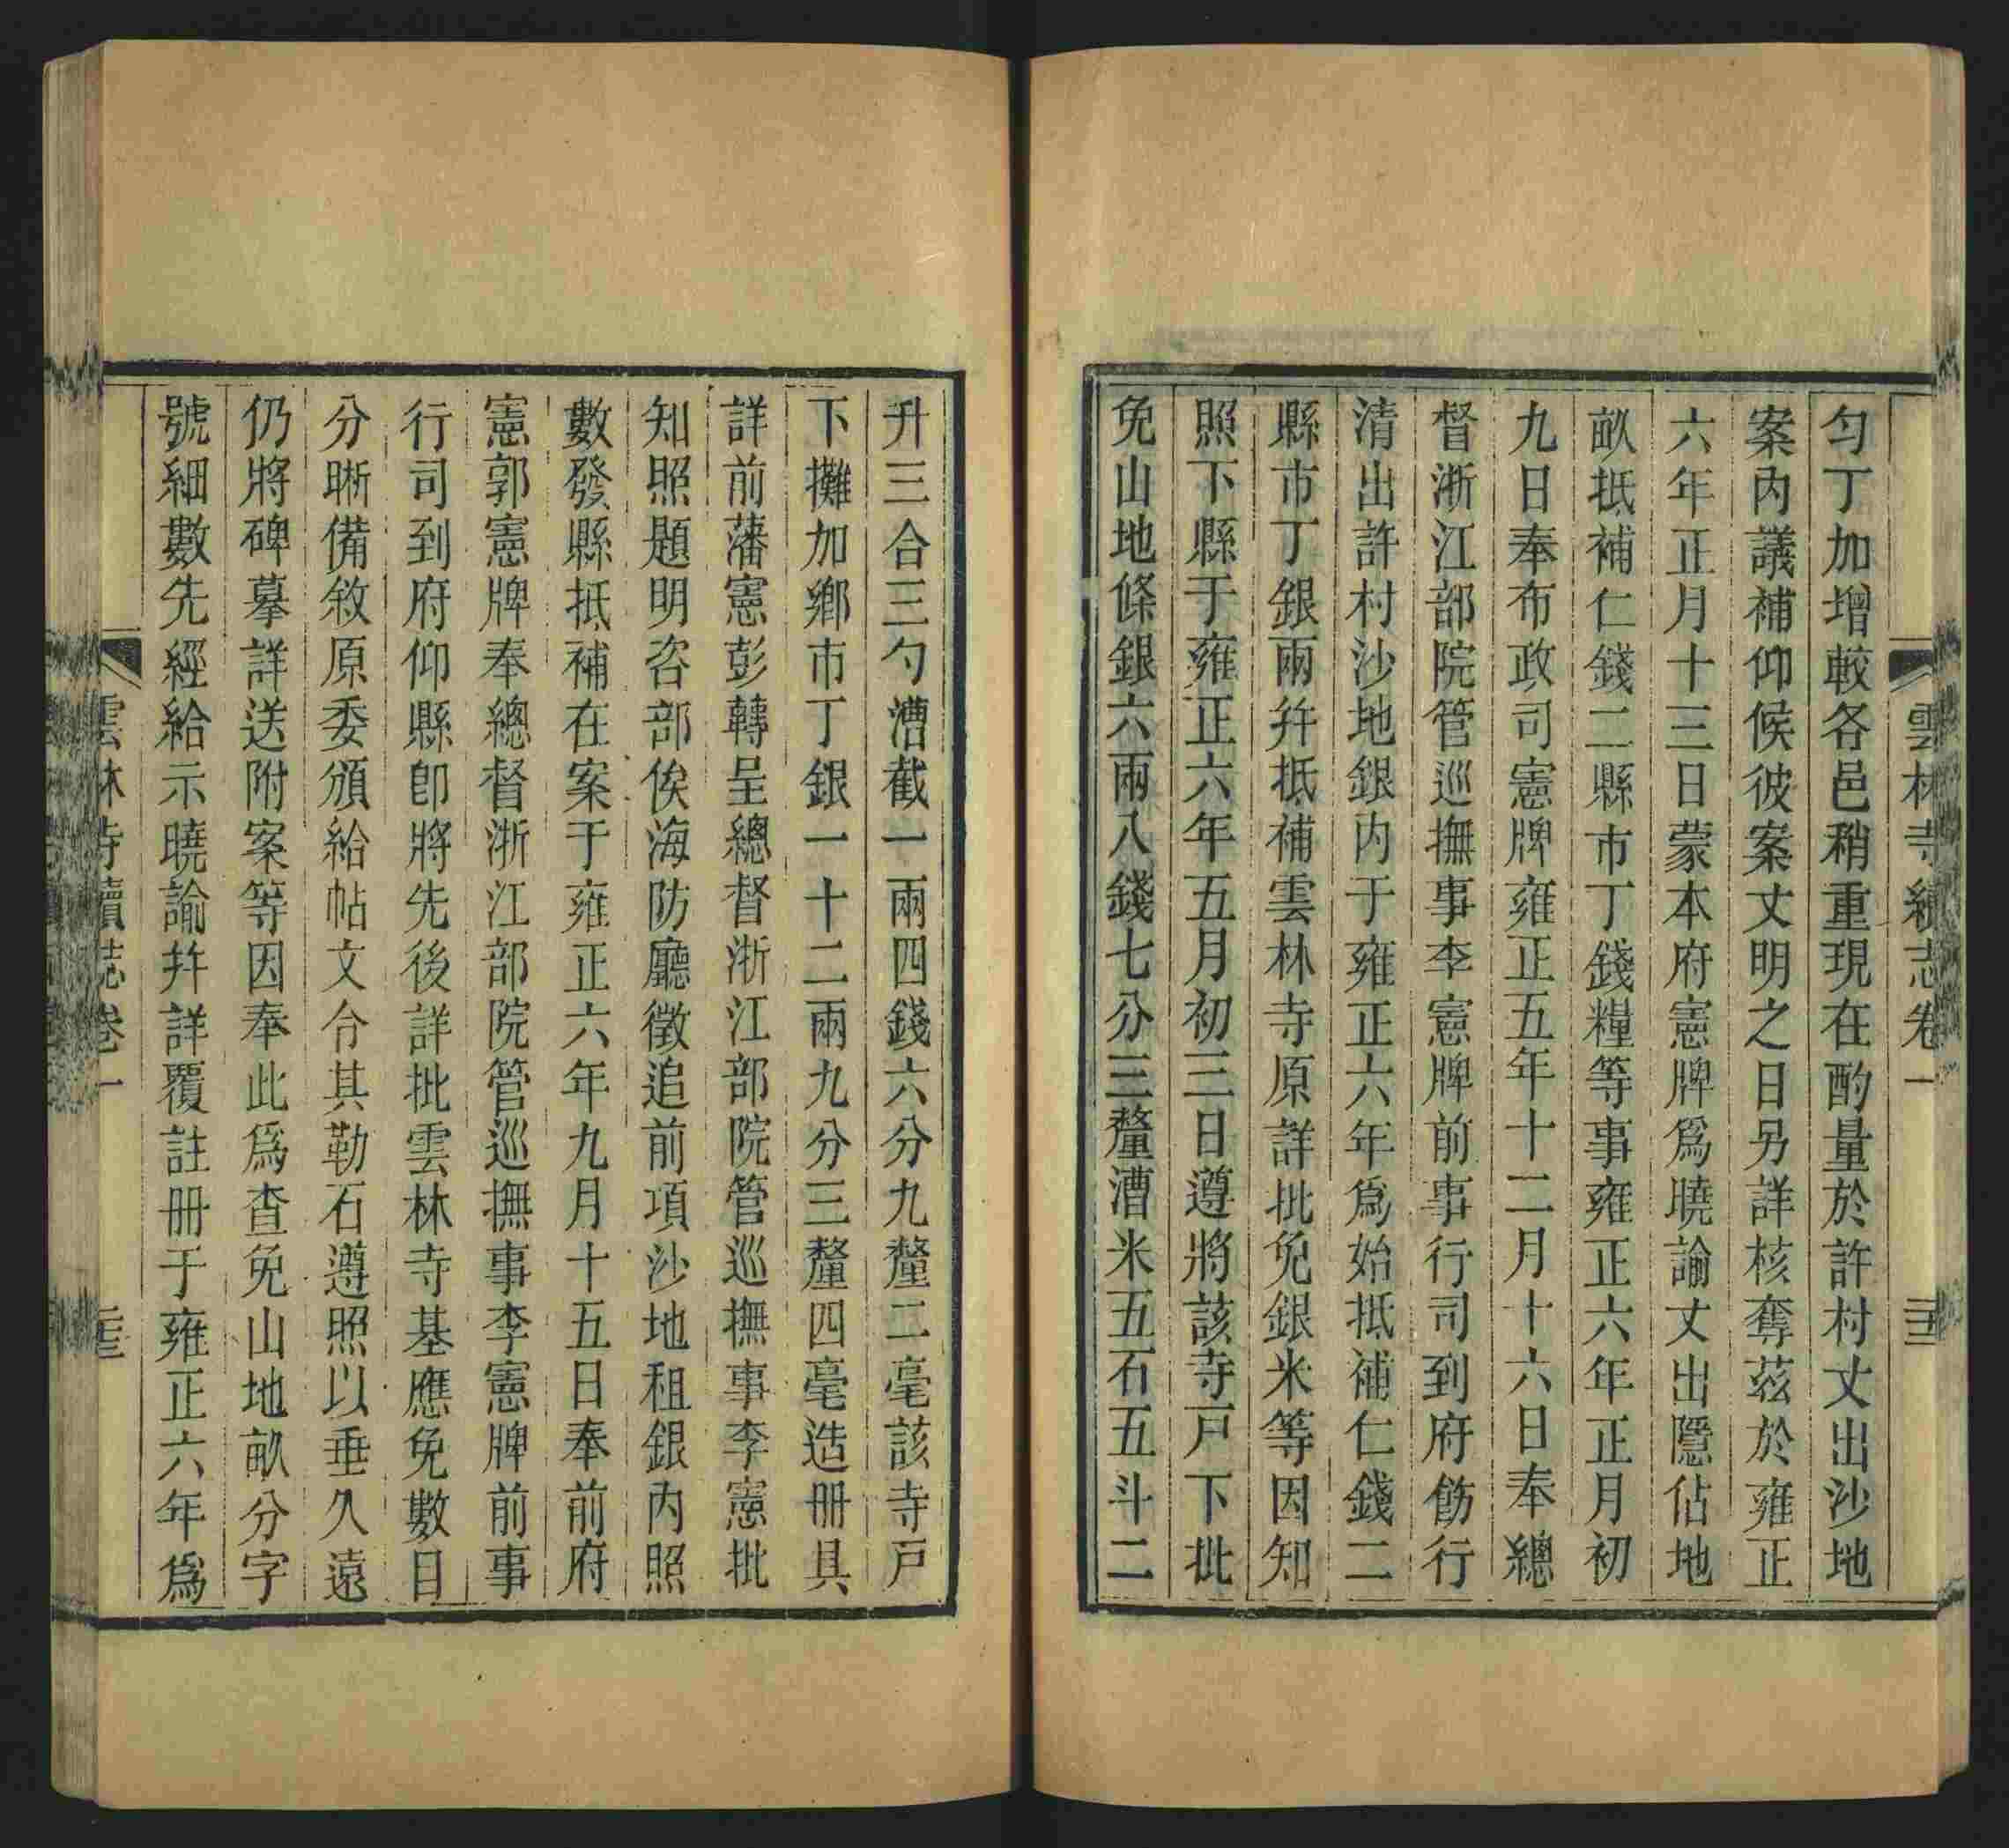 雲林寺續志卷一
匀丁加增較各邑稍重現在酌量於許村丈出沙地
案內議補仰候彼案丈明之日另詳核奪茲於雍正
六年正月十三日蒙本府憲牌爲曉諭丈出隱佔地
畝抵補仁錢二縣市丁錢糧等事雍正六年正月初
九日奉布政司憲牌雍正五年十二月十六日奉總
督浙江部院管巡撫事李憲牌前事行司到府飭行
清出許村沙地銀內于雍正六年爲始抵補仁錢二
縣市丁銀兩并抵補雲林寺原詳批免銀米等因知
照下縣于雍正六年五月初三日遵將該寺戸下批
免山地條銀六兩八錢七分三釐漕米五石五斗二
升三合三勺漕截一兩四錢六分九釐二毫該寺戸
下攤加鄉市丁銀一十二兩九分三釐四毫造冊具
詳前藩憲彭轉呈總督浙江部院管巡撫事李憲批
知照題明咨部俟海防廳徵追前項沙地租銀內照
數發縣抵補在案于雍正六年九月十五日奉前府
憲郭憲牌奉總督浙江部院管巡撫事李憲牌前事
行司到府仰縣卽將先後詳批雲林寺基應免數目
分晰備敘原委頒給帖文令其勒石遵照以垂久遠
仍將碑摹詳送附案等因奉此爲查免山地畝分字
號細數先經給示曉諭幷詳覆註冊于雍正六年爲
雲林寺續志卷一